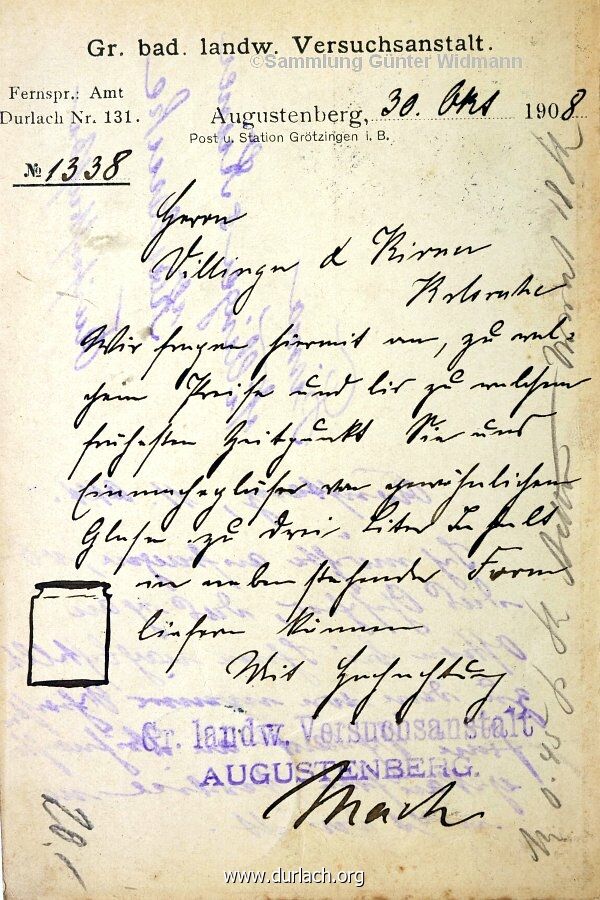 Gr. bad. landw. Versuchsanstalt.
©Sammlung Günter Widmann
Fernspr.: Amt
Durlach Nr. 131.
Augustenberg, 30. Okt 1908
Post u. Station Grötzingen i. B.
№ 1338
Herrn
Villinger & Kirner
Karlsruhe
Wir fragen hiermit an, zu wel-
chem Preise und bis zu welchem
frühesten Zeitpunkt Sie uns
Einmachegläser von gewöhnlichem
Glase zu drei Liter Inhalt
in nebenstehender Form
liefern können
Mit Hochachtung
Gr. landw. Versuchsanstalt
AUGUSTENBERG.
Mach
www.durlach.org